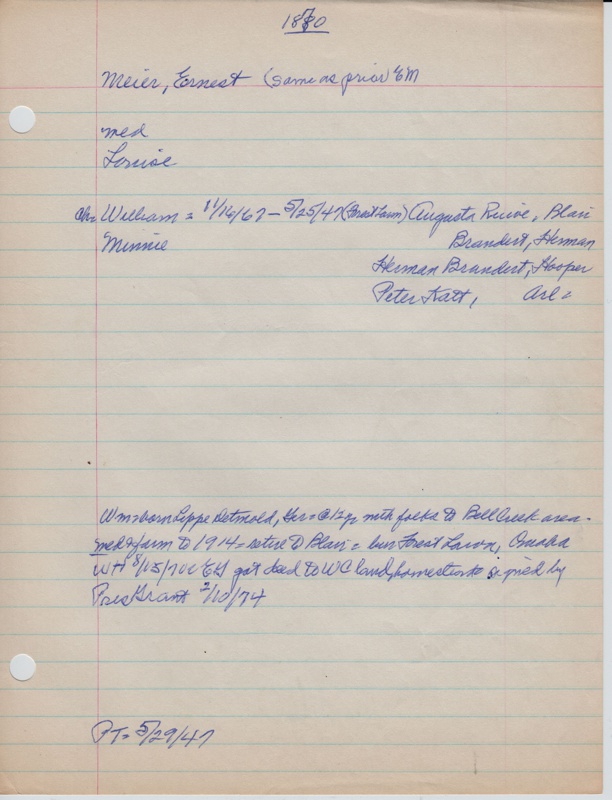 1870
Meier, Ernest (same as prior EM
med
Louise
ch= William = 11/16/67 - 5/25/47 (Forest Lawn) Augusta Ruwe, Blair
Minnie Brandert, Herman
Herman Brandert, Hooper
Peter Katt, Arl =
Wm=born Lippe Detmold, Ger= @ 12 yr with folks to Bell Creek area-
med & farm to 1914 = retire to Blair = bur Forest Lawn, Omaha
WH 8/15/ got deed to WC land, homestead signed by
Pres Grant 2/10/74
PT= 5/29/47